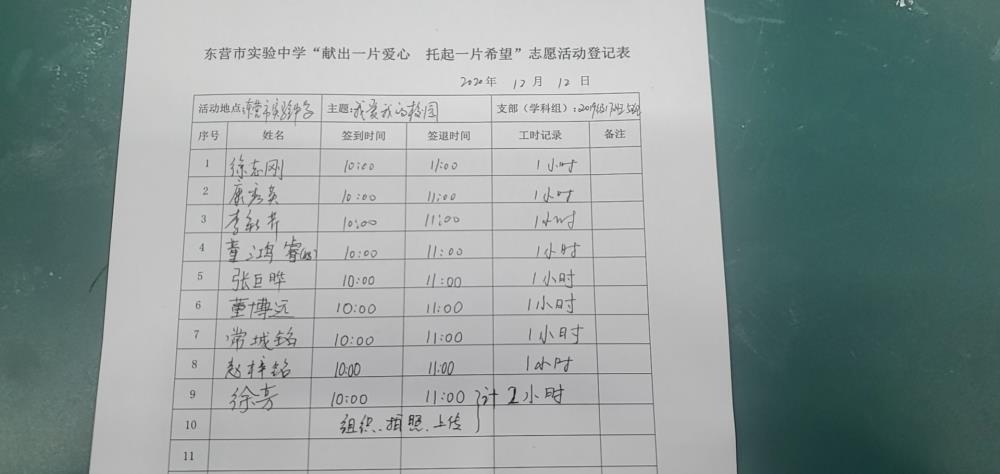 东营市实验中学“献出一片爱心 托起一片希望”志愿活动登记表
2020年 12月 12日
活动地点:东营市实验中学 主题:我爱我的校园 支部（学科组）:2019级
序号 姓名 签到时间 签退时间 工时记录 备注
1 徐志刚 10:00 11:00 1小时
2 康秀英 10:00 11:00 1小时
3 李新芹 10:00 11:00 1小时
4 董鸿睿 10:00 11:00 1小时
5 张巨晔 10:00 11:00 1小时
6 董博远 10:00 11:00 1小时
7 常城铭 10:00 11:00 1小时
8 赵梓铭 10:00 11:00 1小时
9 徐芳 10:00 11:00 计2小时
10 组织、拍照、上传
11